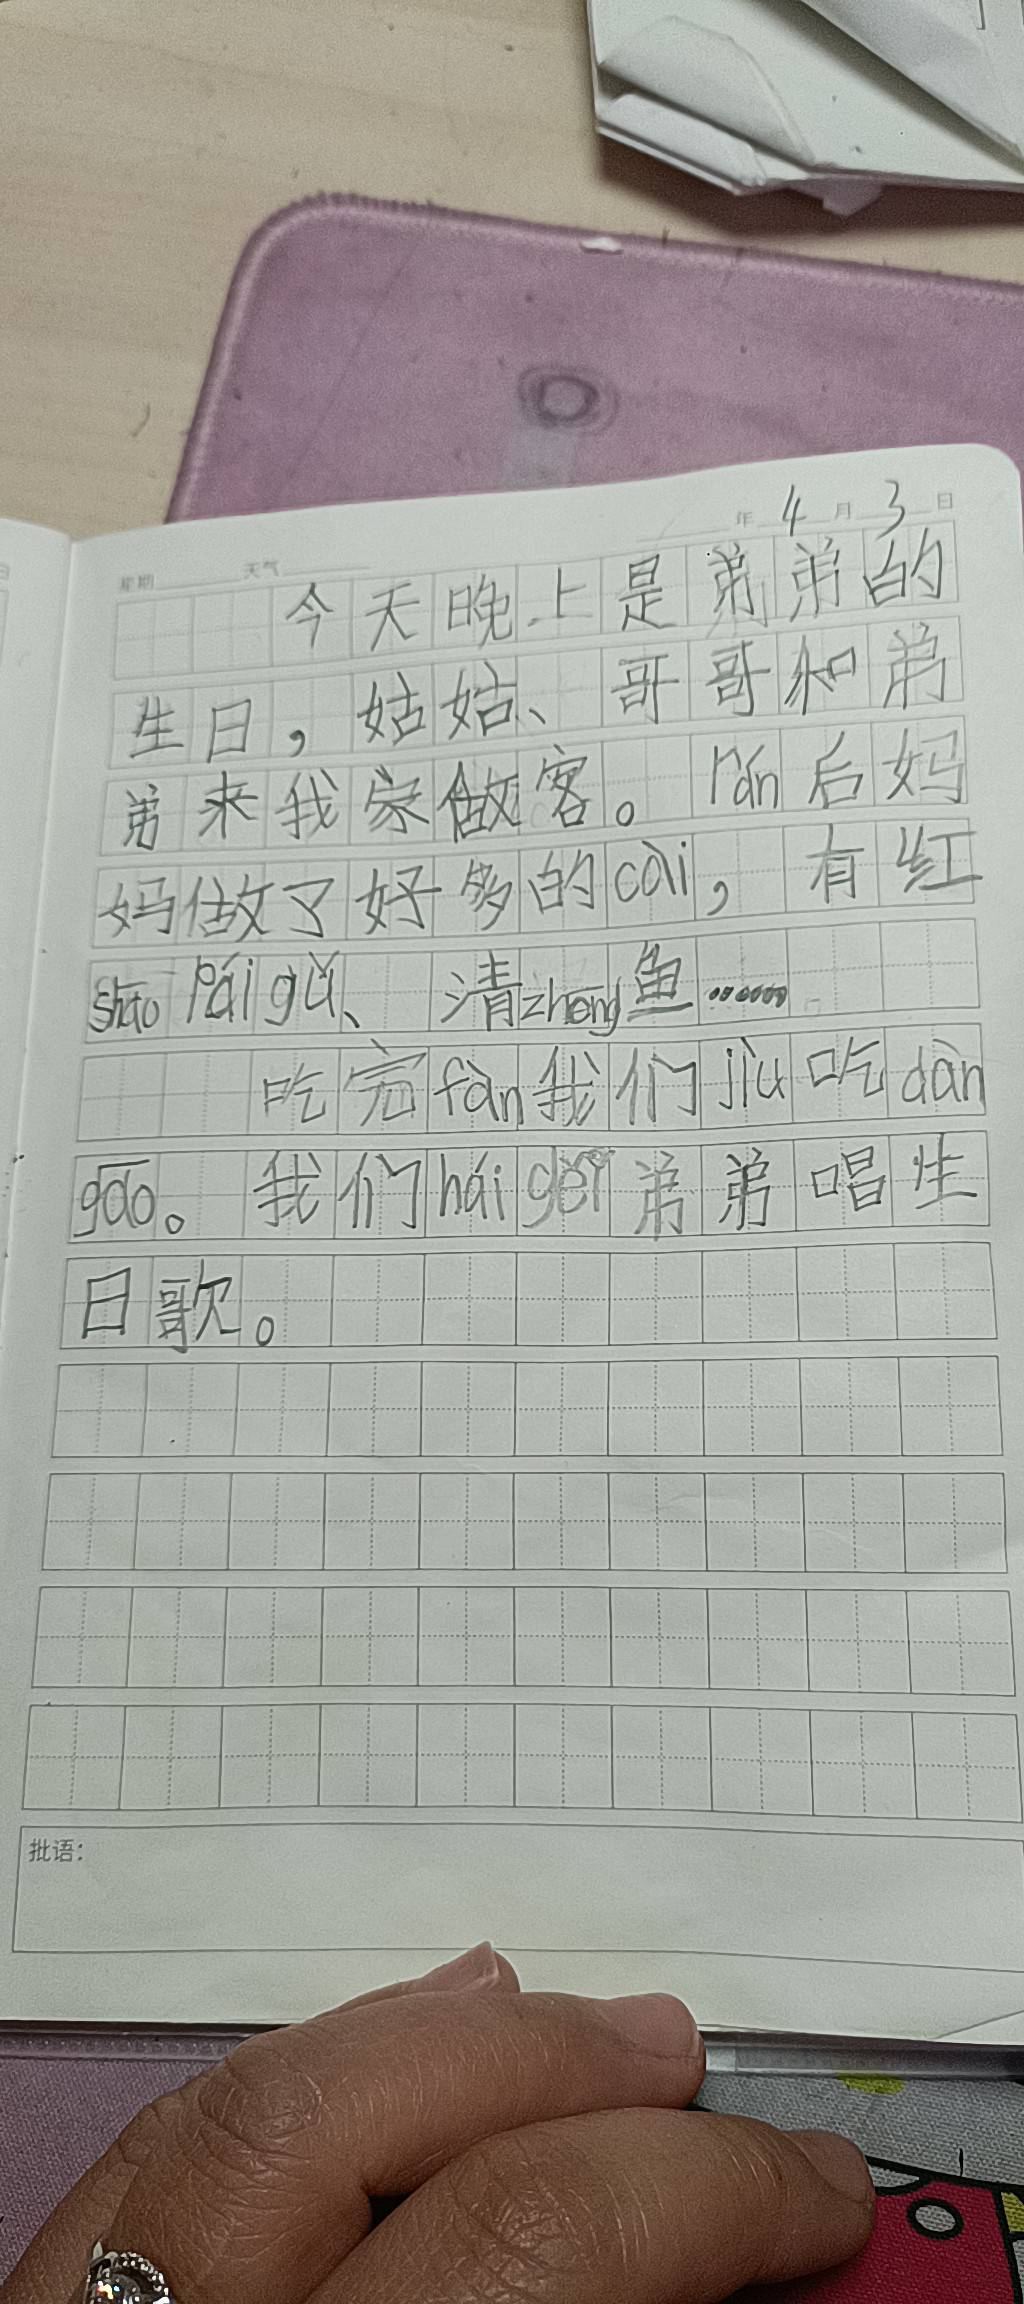 年 4 月 3 日
星期 天气
今天晚上是弟弟的
生日，姑姑、哥哥和弟
弟来我家做客。rán后妈
妈做了好多的cài，有红
shāo pái gǔ、清zhēng鱼……
吃完fàn我们jiù吃dàn
gāo。我们hái gěi弟弟唱生
日歌。
批语：